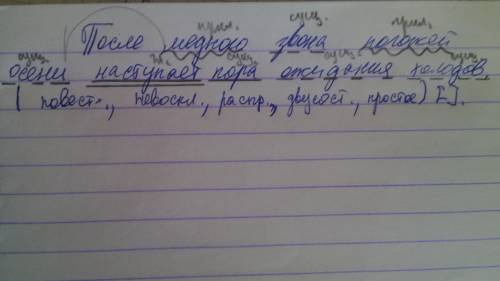 прил. сущ. прил.
После медного звона погожей
сущ. гл. сущ. сущ. сущ.
осени наступает пора ожидания холодов.
( повест., невоскл., распр., двусост., простое) [].